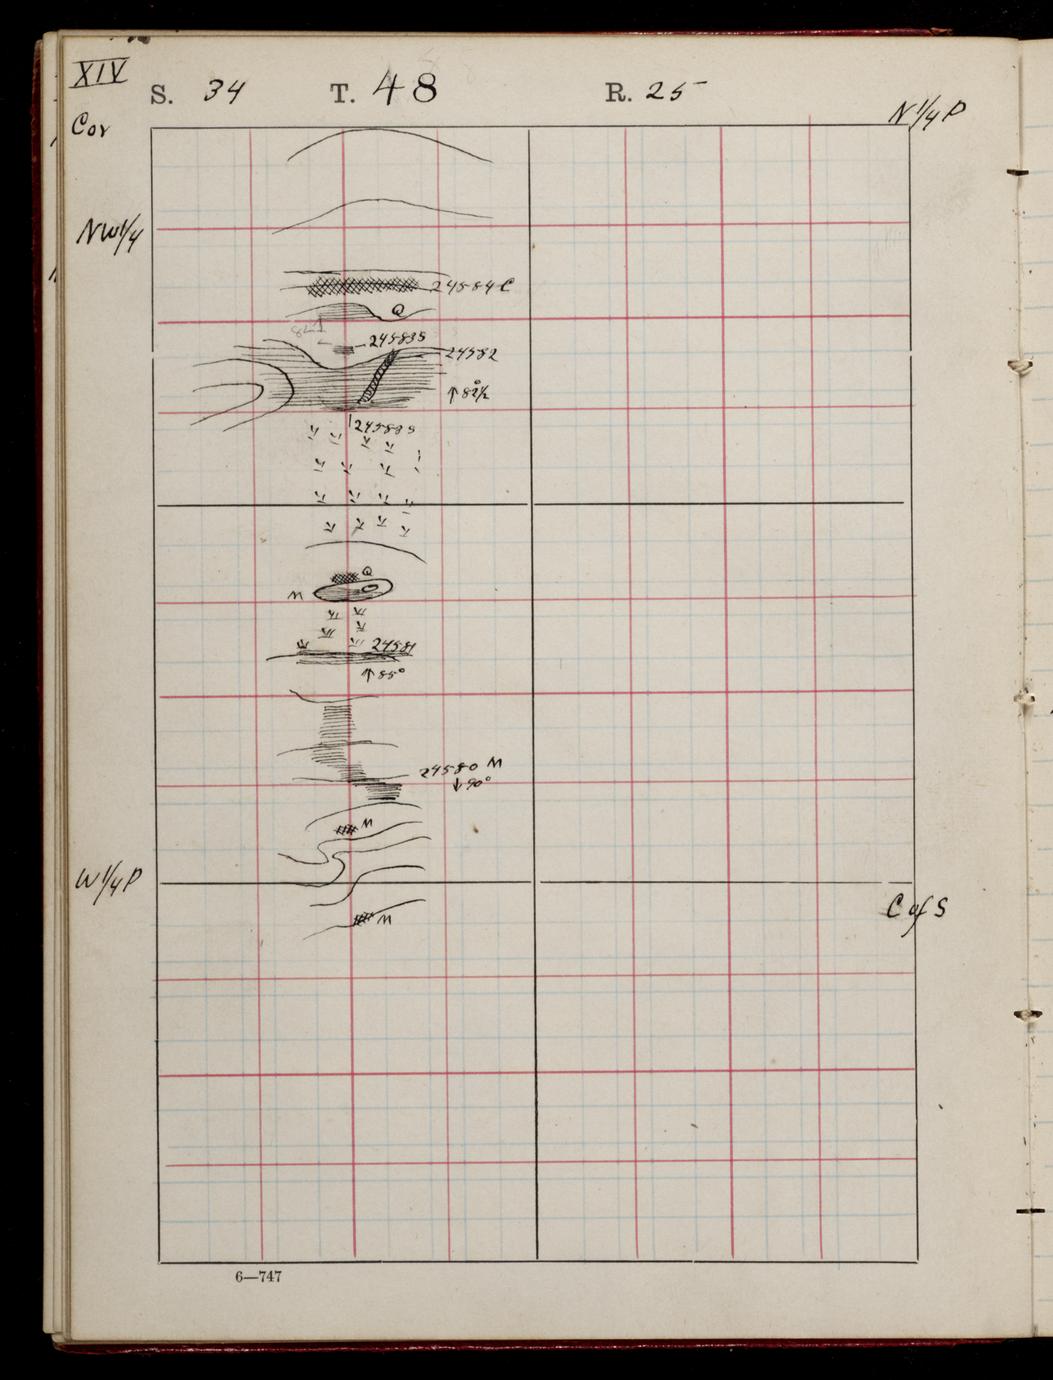 XIV
S. 34 T. 48 R. 25
Cor
N 1/4 P
NW 1/4
24584 C
Q
24583S
24582
↑ 82½°
24583S
Q
M
24581
↑ 85°
24580 M
↓ 90°
M
W 1/4 P
C of S
M
6—747